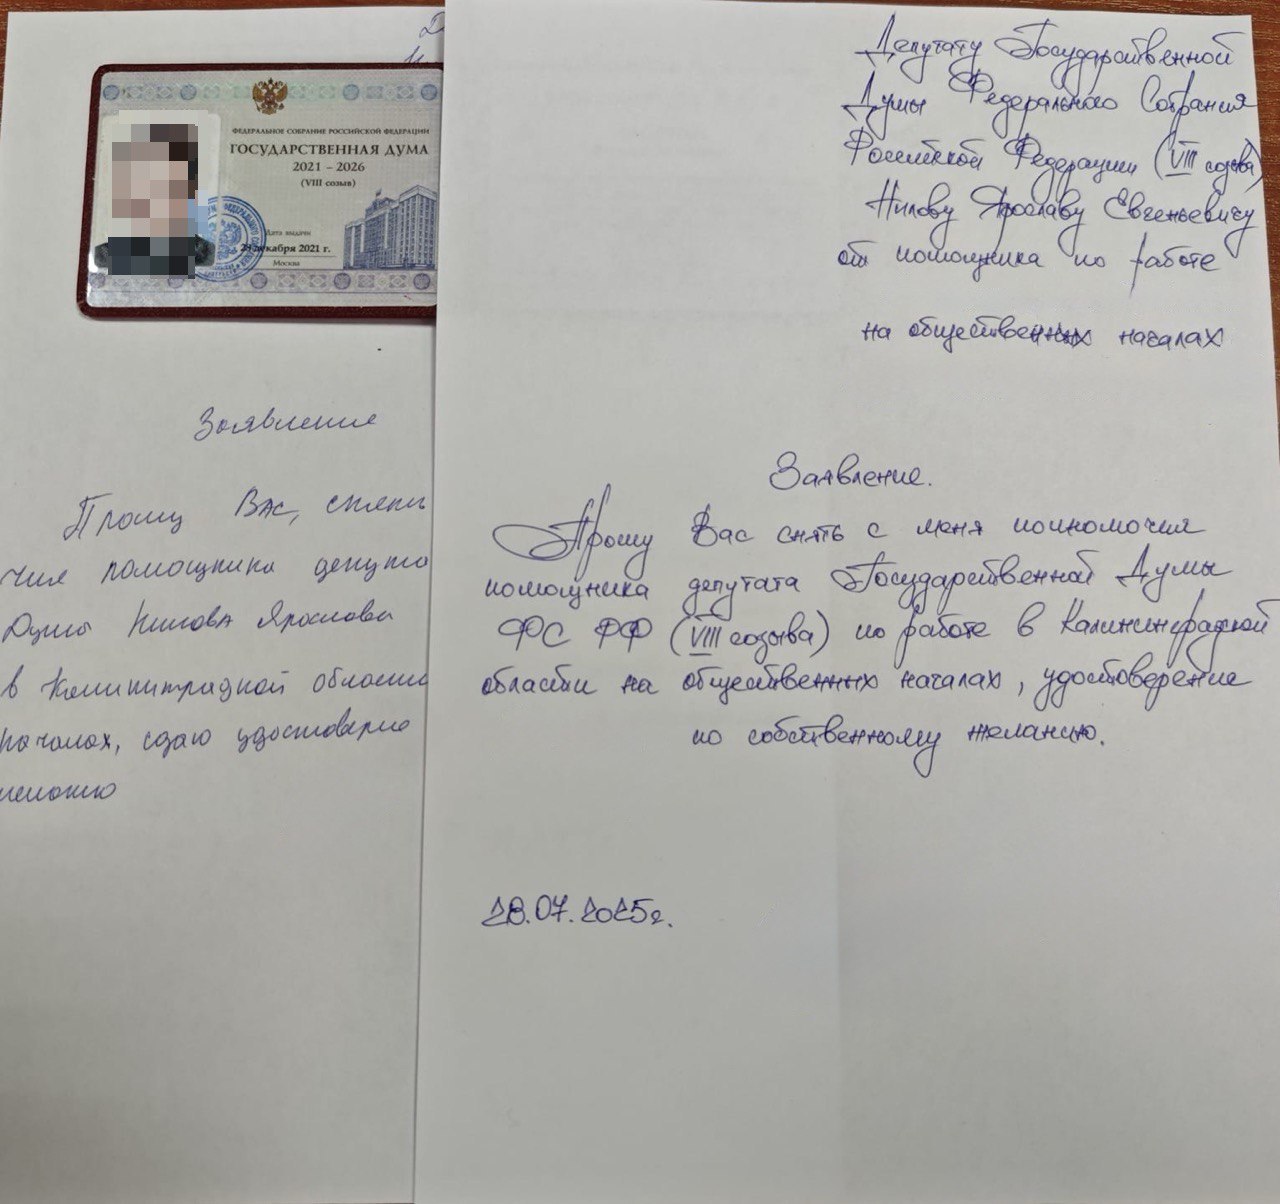 ФЕДЕРАЛЬНОЕ СОБРАНИЕ РОССИЙСКОЙ ФЕДЕРАЦИИ
ГОСУДАРСТВЕННАЯ ДУМА
2021 – 2026
(VIII созыв)
Дата выдачи
декабря 2021 г.
Москва
Заявление
Прошу Вас,
чия помощника
Думы Нилова Ярослава
в Калининградской области
началах, сдаю
Депутату Государственной
Думы Федерального Собрания
Российской Федерации (VIII созыва)
Нилову Ярославу Евгеньевичу
от помощника по работе
на общественных началах
Заявление.
Прошу Вас снять с меня полномочия
помощника депутата Государственной Думы
ФС РФ (VIII созыва) по работе в Калининградской
области на общественных началах, удостоверение
по собственному желанию.
28.07.2025г.